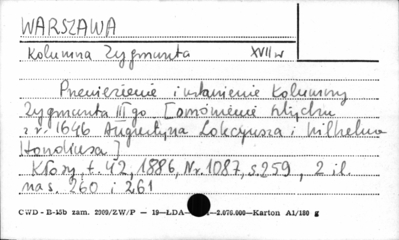 WARSZAWA
Kolumna Zygmunta XVII w
Przeniesienie i ustawienie Kolumny
Zygmunta III go [omówienie sztychu
z r. 1646 Augustyna Lokcyusza i Wilhelma
Hondiusa.]
Kłosy, t. 42, 1886, Nr. 1087, s. 259, 2 il.
na s. 260 i 261
CWD - E-15b zam. 2909/ZW/P — 19—LDA— —2.076.000—Karton A1/180 g